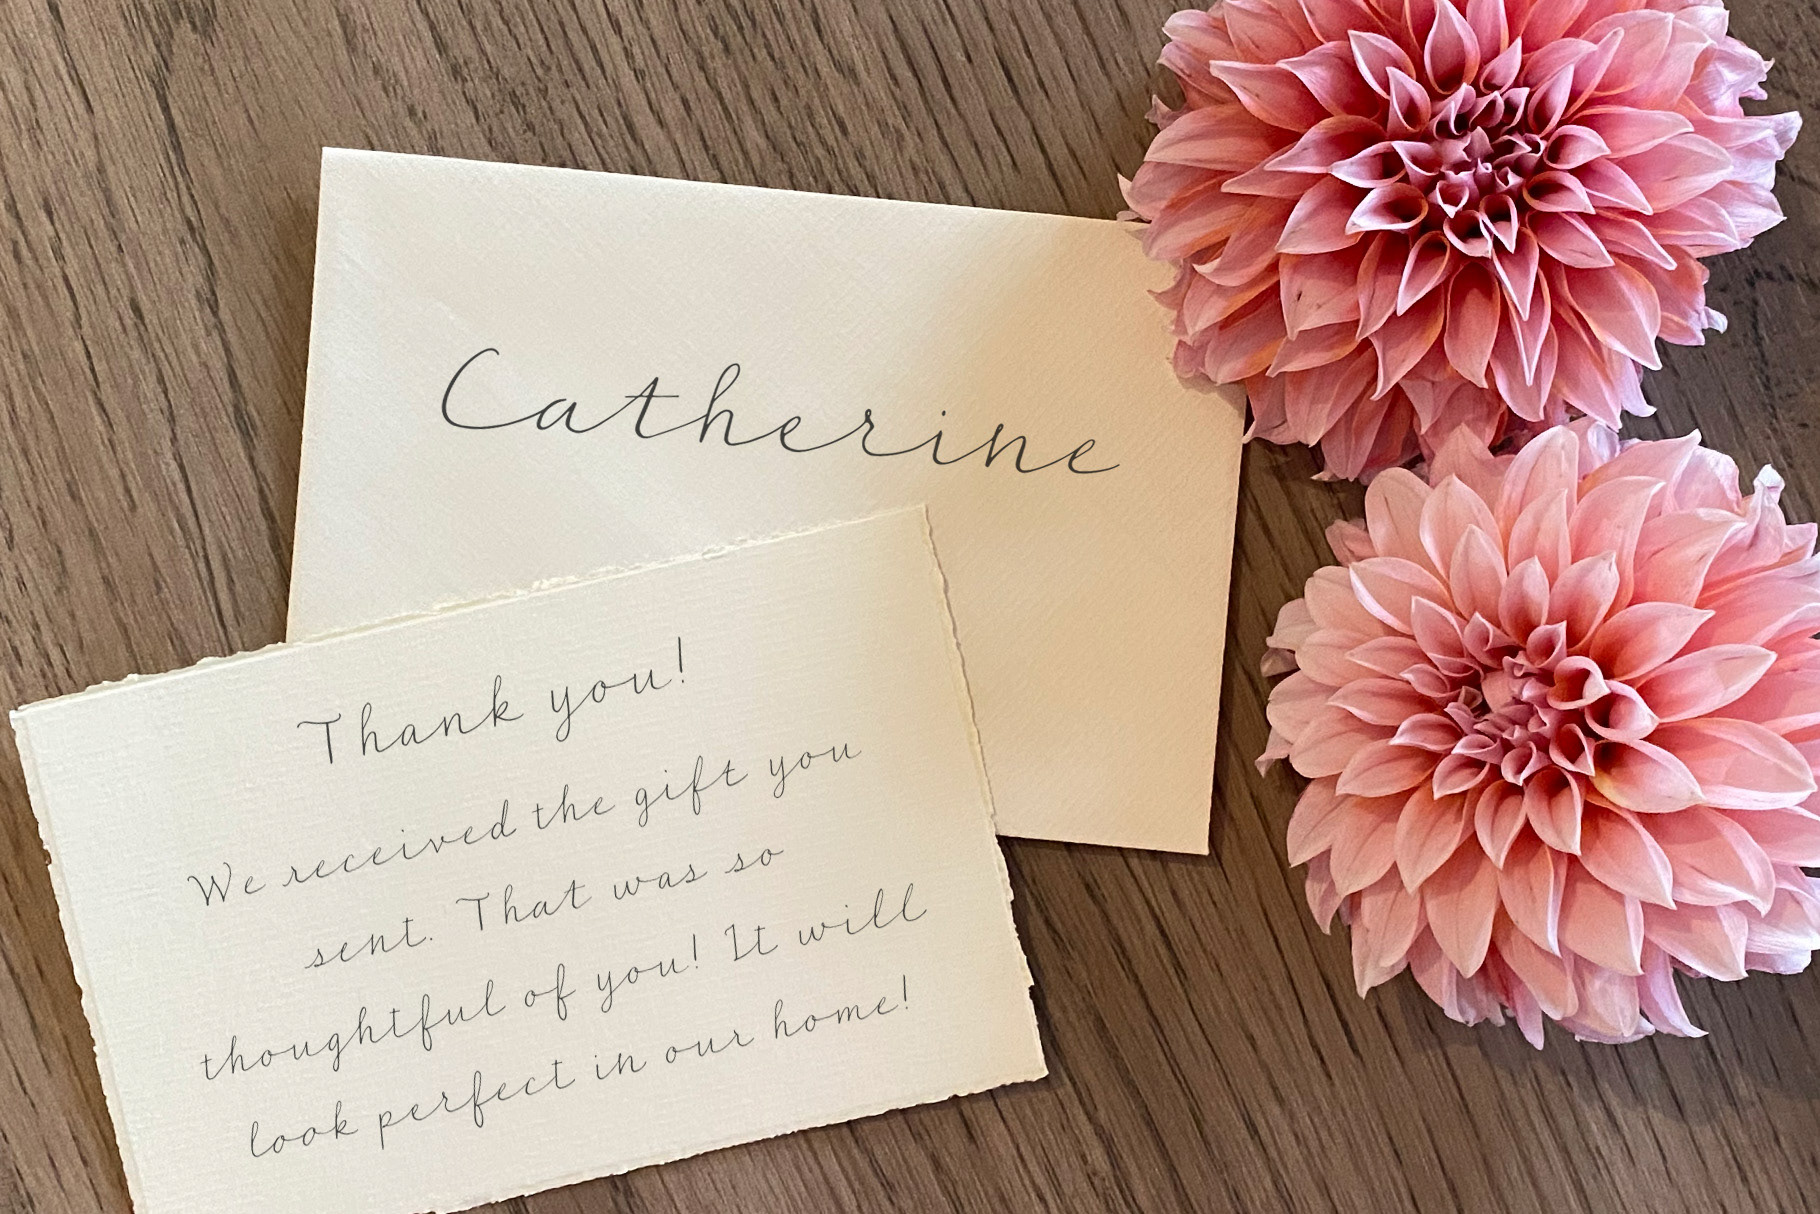 Catherine
Thank you!
We received the gift you
sent. That was so
thoughtful of you! It will
look perfect in our home!